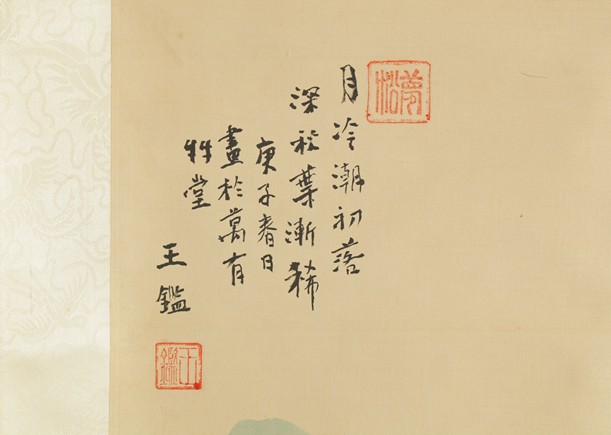 月冷潮初落
深秋葉漸稀
庚子春日
畫於萬有
竹堂
王鑑
王鑑